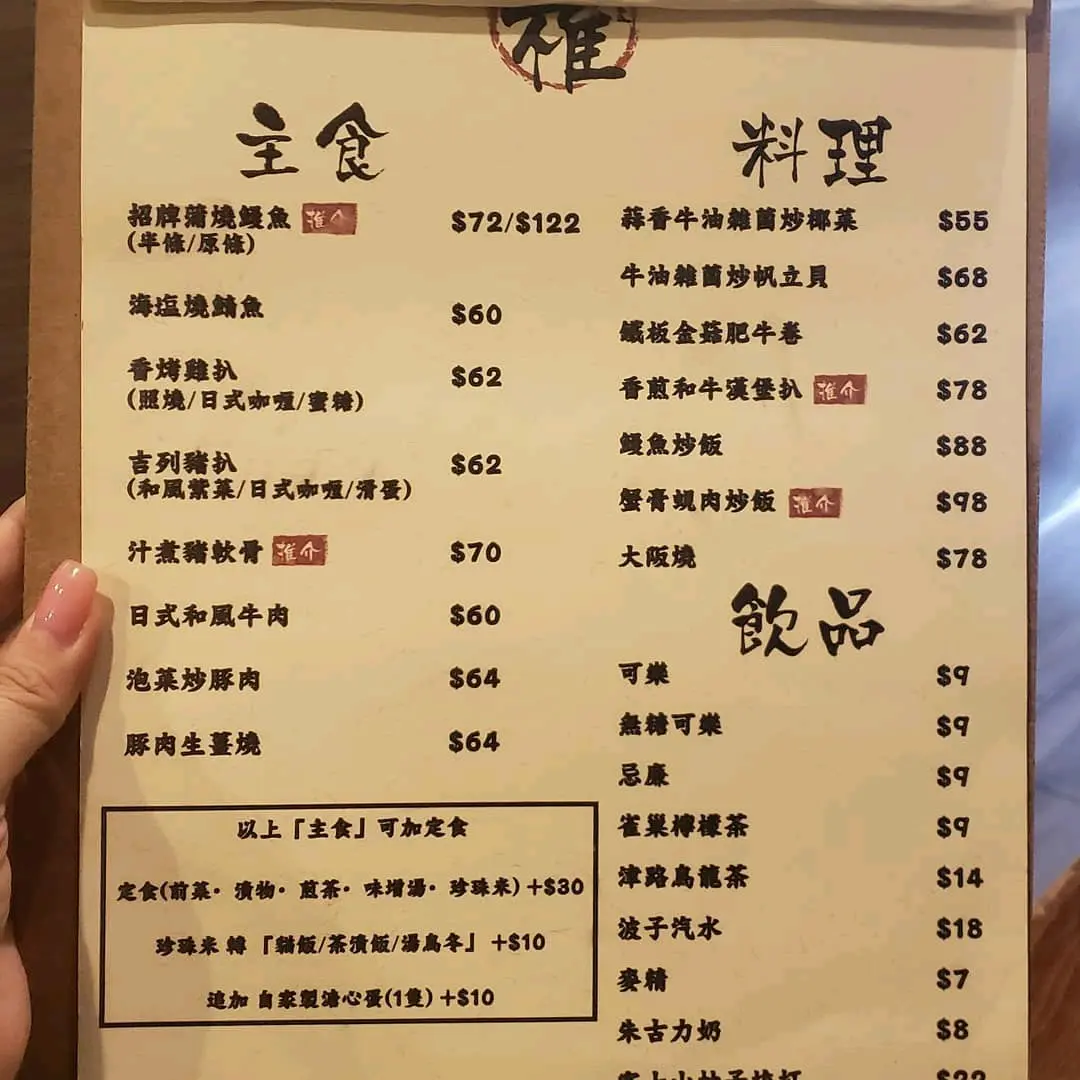 雅
主食
招牌蒲燒鰻魚 推介 $72/$122
(半條/原條)
海塩燒鯖魚 $60
香烤雞扒 $62
(照燒/日式咖喱/蜜糖)
吉列豬扒 $62
(和風紫菜/日式咖喱/滑蛋)
汁煮豬軟骨 推介 $70
日式和風牛肉 $60
泡菜炒豚肉 $64
豚肉生薑燒 $64
以上「主食」可加定食
定食(前菜· 漬物· 煎茶· 味增湯· 珍珠米) +$30
珍珠米 轉 「貓飯/茶漬飯/湯烏冬」 +$10
追加 自家製溏心蛋(1隻) +$10
料理
蒜香牛油雜菌炒椰菜 $55
牛油雜菌炒帆立貝 $68
鐵板金菇肥牛卷 $62
香煎和牛漢堡扒 推介 $78
鰻魚炒飯 $88
蟹膏蜆肉炒飯 推介 $98
大阪燒 $78
飲品
可樂 $9
無糖可樂 $9
忌廉 $9
雀巢檸檬茶 $9
津路烏龍茶 $14
波子汽水 $18
麥精 $7
朱古力奶 $8